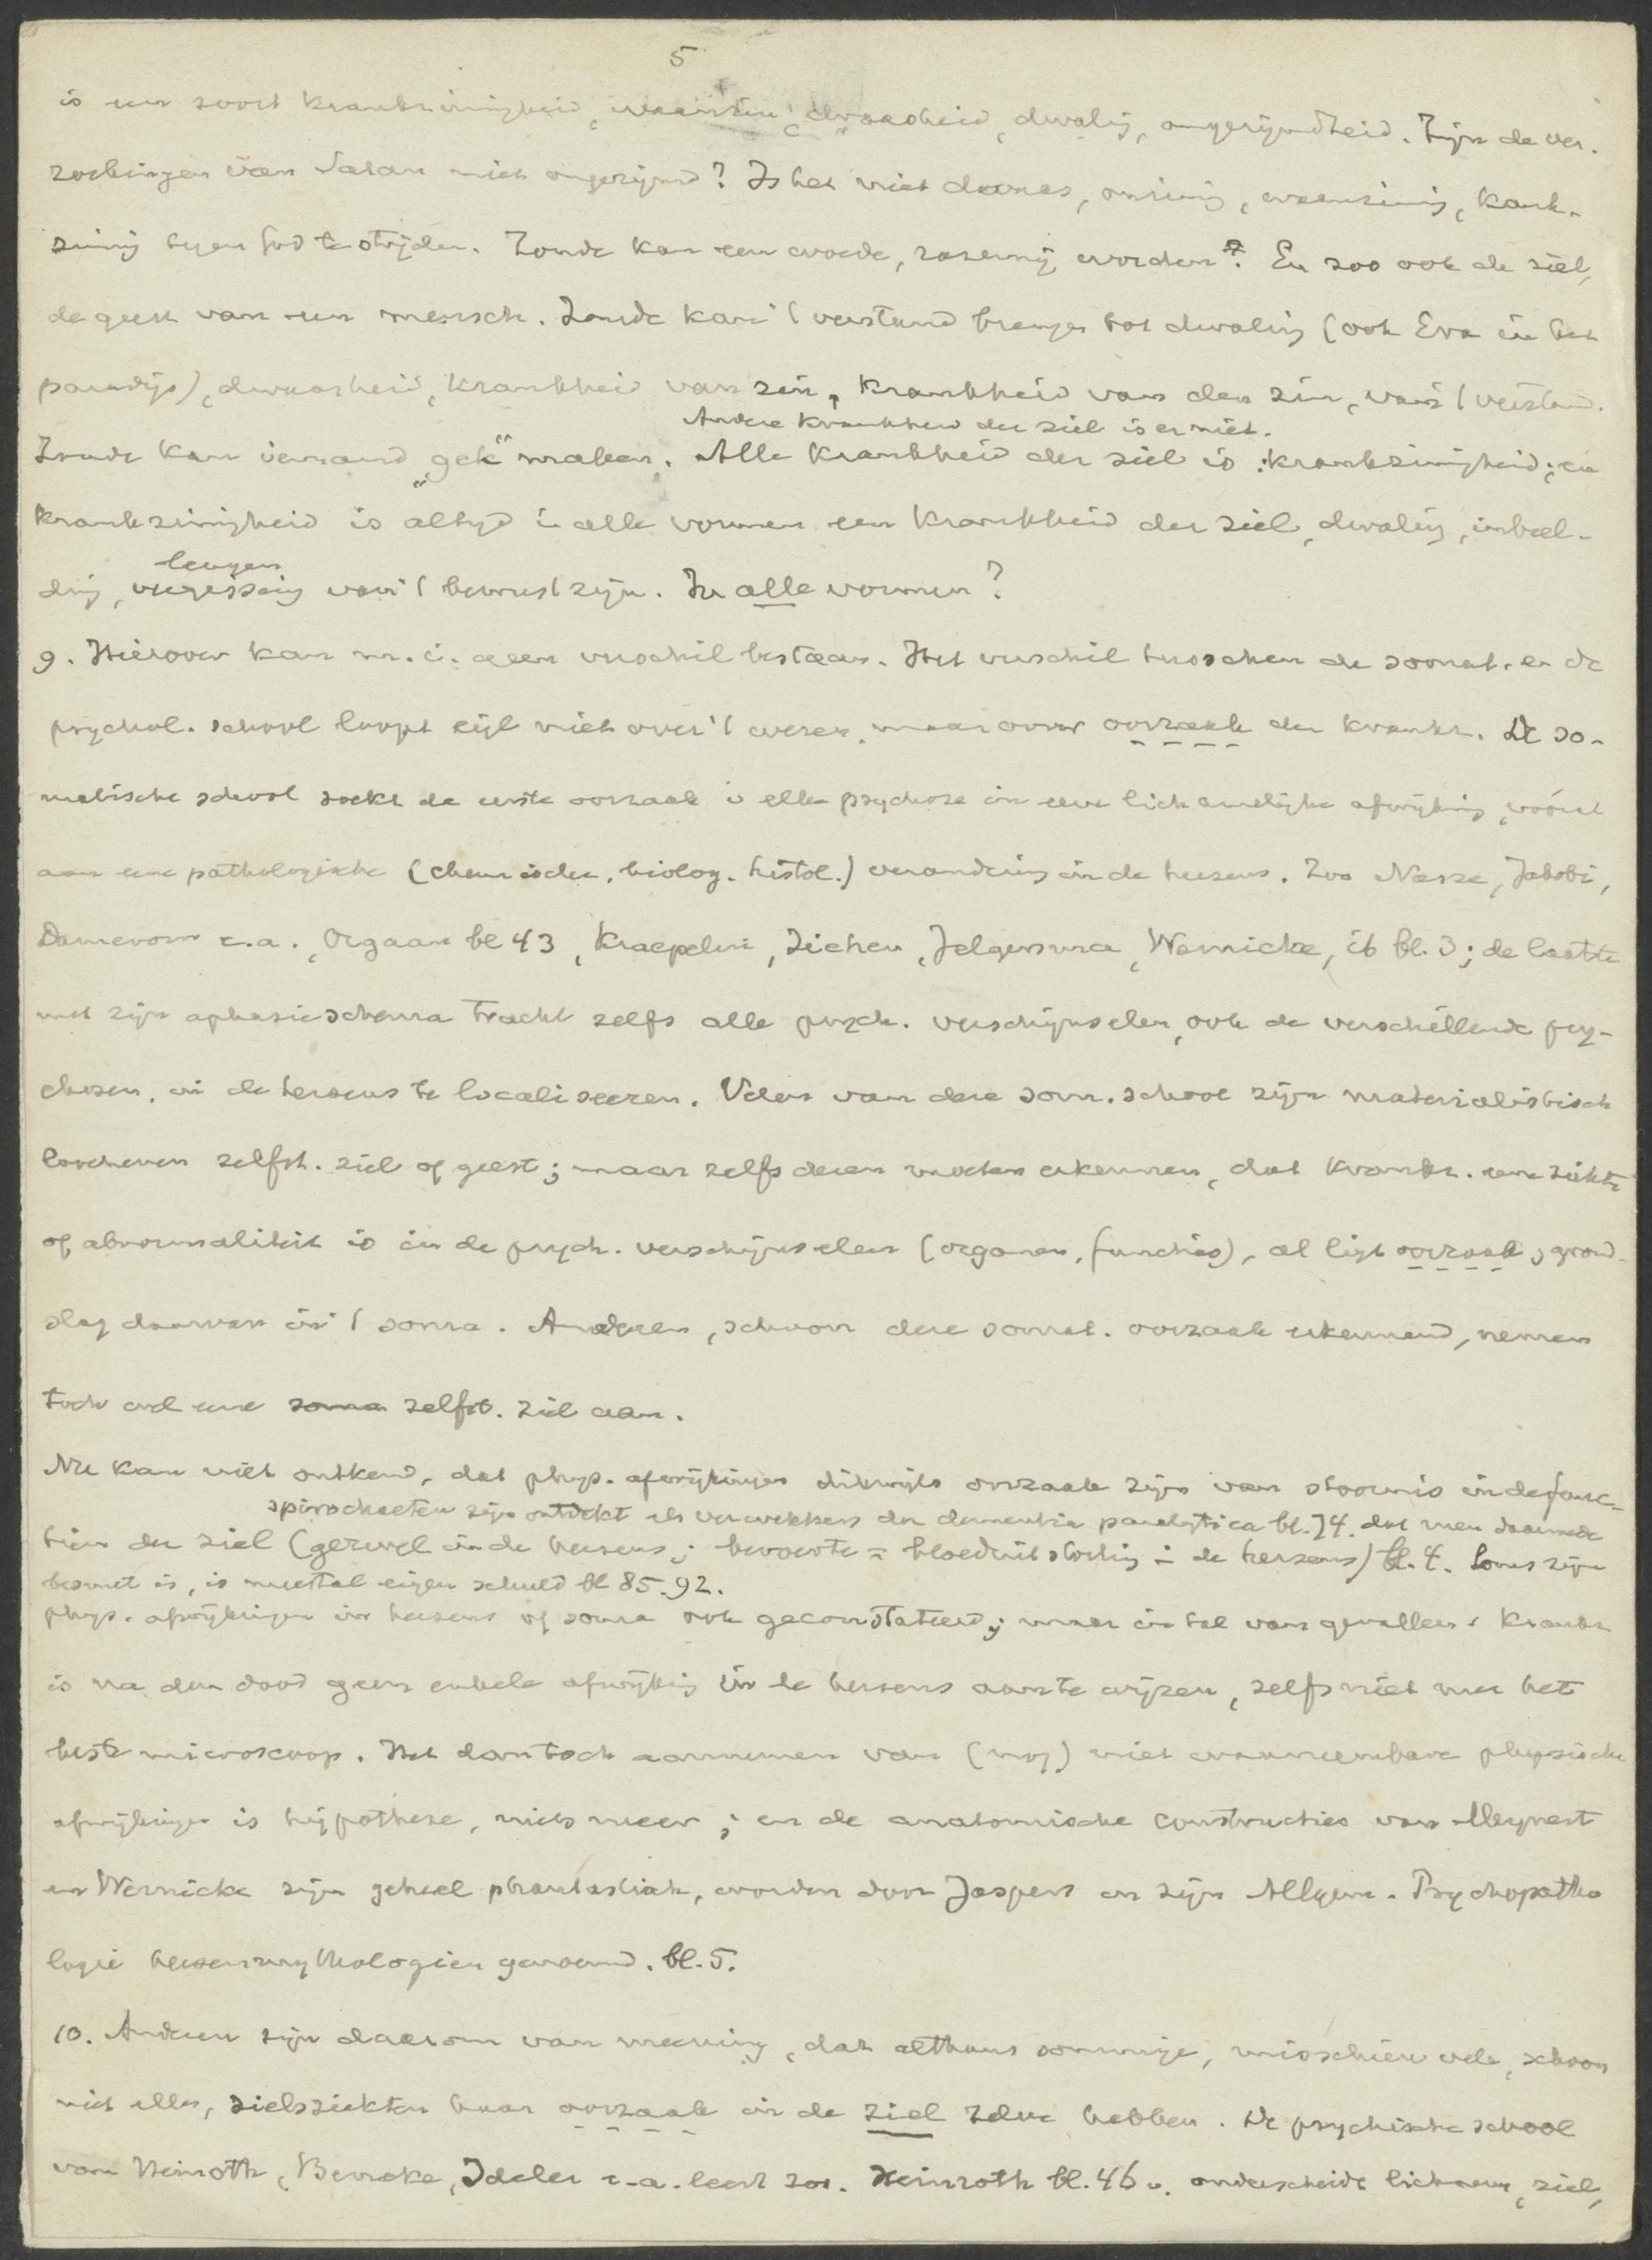 5
is een soort krankzinnigheid, waanzin, dwaasheid, dwaling, ongerijmdheid. Zijn de ver-
zoekingen van Satan niet ongerijmd? Is het niet dwaas, onzinnig, waanzinnig, krank-
zinnig tegen God te strijden. Zonde kan een woede, razernij worden. En zoo ook de ziel,
de geest van een mensch. Zonde kan 't verstand brengen tot dwaling (ook Eva in het
paradijs), dwaasheid, krankheid van zin, krankheid van den zin, van 't verstand.
Andere krankheid der ziel is er niet.
Zonde kan iemand "gek" maken. Alle krankheid der ziel is: krankzinnigheid; en
krankzinnigheid is altijd in alle vormen een krankheid der ziel, dwaling, inbeel-
leugen
ding, vergissing van 't bewustzijn. In alle vormen?
9. Hierover kan m.i. geen verschil bestaan. Het verschil tusschen de somat. en de
psychol. school loopt eigl niet over 't wezen, maar over oorzaak der krankz. De so-
matische school zoekt de eerste oorzaak v elke psychose in eene lichamelijke afwijking, vooral
aan eene pathologische (chemische, biolog. histol.) verandering in de hersens. Zoo Nasse, Jakobi,
Damerow e.a., Orgaan bl 43, Kraepelin, Ziehen, Jelgersma, Wernicke, ib bl. 3; de laatste
met zijn aphasieschema tracht zelfs alle psych. verschijnselen, ook de verschillende psy-
chosen, in de hersens te localiseeren. Velen van deze som. school zijn materialistisch
loochenen zelfst. ziel of geest; maar zelfs dezen moeten erkennen, dat krankz. eene ziekte
of abnormaliteit is in de psych. verschijnselen (organen, functies), al ligt oorzaak, grond-
slag daarvan in 't soma. Anderen, schoon deze somat. oorzaak erkennend, nemen
toch wel eene soma zelfst. ziel aan.
Nu kan niet ontkend, dat phys. afwijkingen dikwijls oorzaak zijn van stoornis in de func-
spirochaeten zijn ontdekt als verwekkers der dementia paralytica bl. 74. dat men daarmede
tien der ziel (gezwel in de hersens; beroerte = bloeduitstorting in de hersens) bl. 4. Soms zijn
besmet is, is meestal eigen schuld bl 85. 92.
phys. afwijkingen in hersens of soma ook geconstateerd; maar in tal van gevallen v krankz
is na den dood geen enkele afwijking in de hersens aan te wijzen, zelfs niet met het
beste microscoop. Het dan toch aannemen van (nog) niet waarneembare physische
afwijkingen is hypothese, niets meer; en de anatomische constructies van Meynert
en Wernicke zijn geheel phantastisch, worden door Jaspers in zijn Allgem. Psychopatho
logie hersenmythologieen genoemd. bl. 5.
10. Anderen zijn daarom van meening, dat althans sommige, misschien vele, schoon
niet alle, zielsziekten haar oorzaak in de ziel zelve hebben. De psychische school
van Heinroth, Beneke, Ideler e.a. leert zoo. Heinroth bl. 46 v. onderscheidt lichaam, ziel,